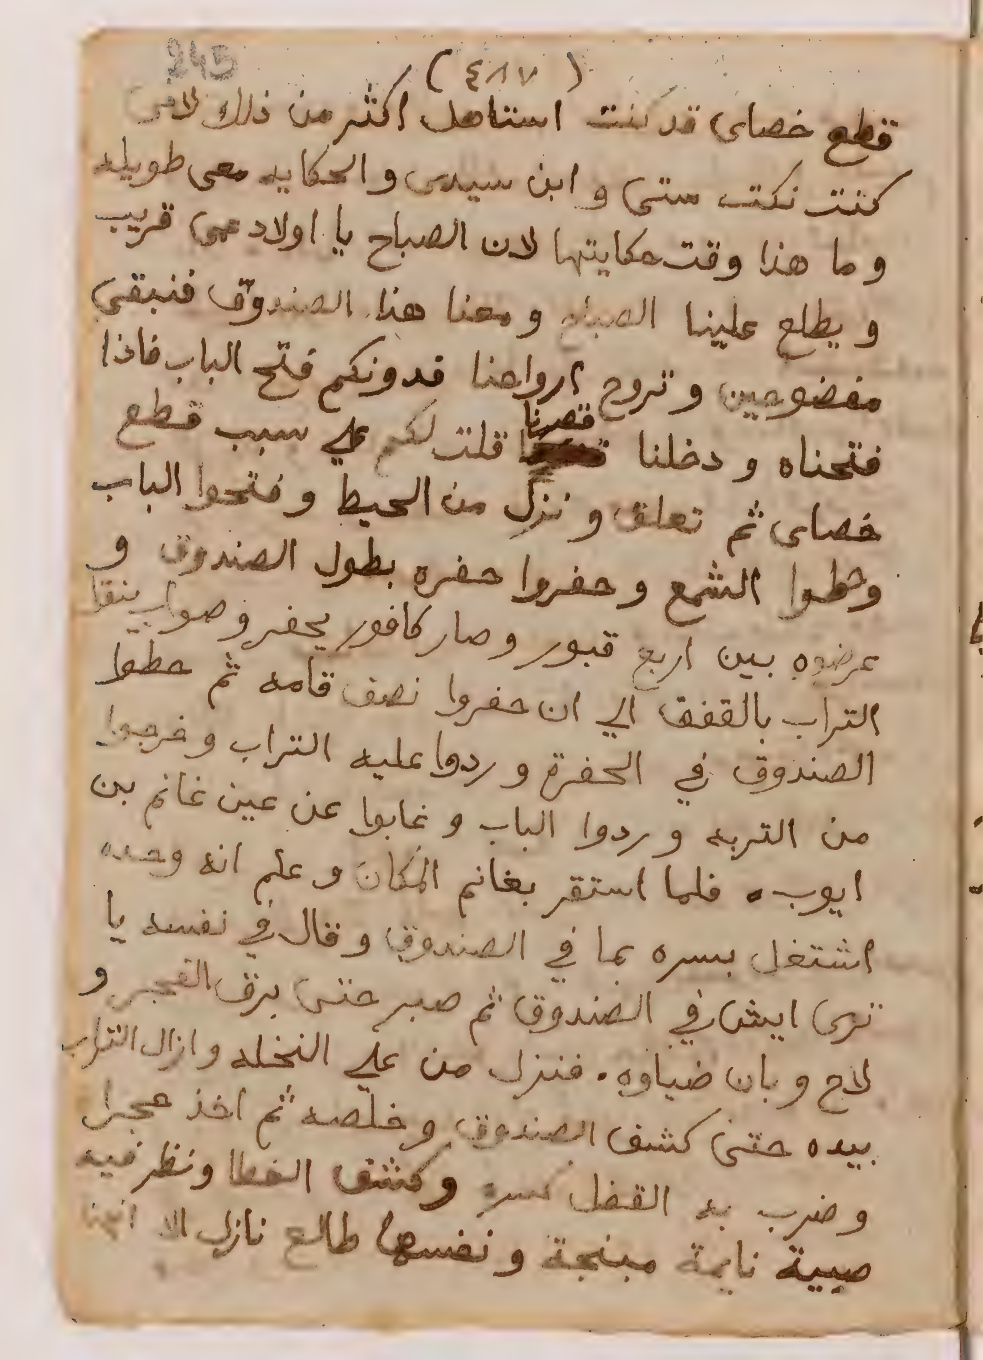 245
(٤٨٧)
قطع خصاى قد كنت استاهل اكثر من ذلك لانى
كنت نكت ستى و ابن سيدى و الحكايه معى طويله
و ما هذا وقت حكايتها لان الصباح يا اولاد عمى قريب
و يطلع علينا الصباح و معنا هذا الصندوق فنبقى
مفضوحين و تروح ارواحنا فدونكم فتح الباب فاذا
فتحناه و دخلنا قصرنا قلت لكم على سبب قطع
خصاى ثم تعلق و نزل من الحيط و فتحوا الباب
وحطوا الشمع و حفروا حفره بطول الصندوق و
عرضوه بين اربع قبور و صار كافور يحفر و صواب ينقل
التراب بالقفف الى ان حفروا نصف قامه ثم حطوا
الصندوق في الحفرة و ردوا عليه التراب و خرجوا
من التربه و ردوا الباب و غابوا عن عين غانم بن
ايوب. فلما استقر بغانم المكان و علم انه وحده
اشتغل بسره بما في الصندوق و قال في نفسه يا
ترى ايش في الصندوق ثم صبر حتى برق الفجر و
لاح و بان ضياوه. فنزل من على النخله و ازال التراب
بيده حتى كشف الصندوق و خلصه ثم اخذ حجرا
و ضرب به القفل كسره و كشف الغطا و نظر فيه
صبية نايمة مبنجة و نفسها طالع نازل الا انها